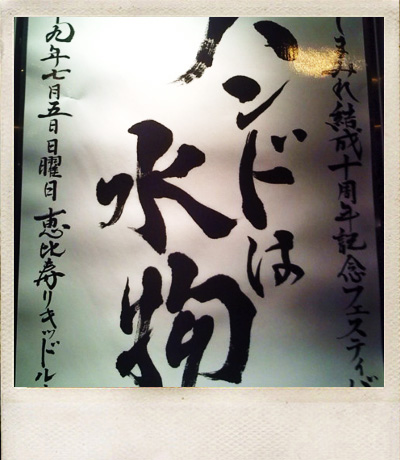 しまみれ結成十周年記念フェスティバ
バンドは
水物
九年七月五日日曜日 恵比寿リキッドル